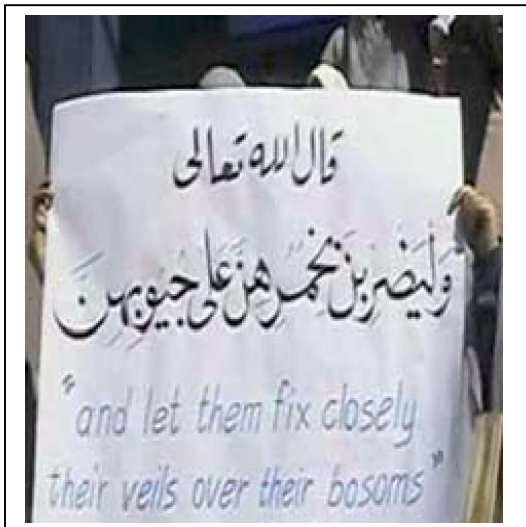 قال الله تعالى
وَلْيَضْرِبْنَ بِخُمُرِهِنَّ عَلَى جُيُوبِهِنَّ
"and let them fix closely
their veils over their bosoms"